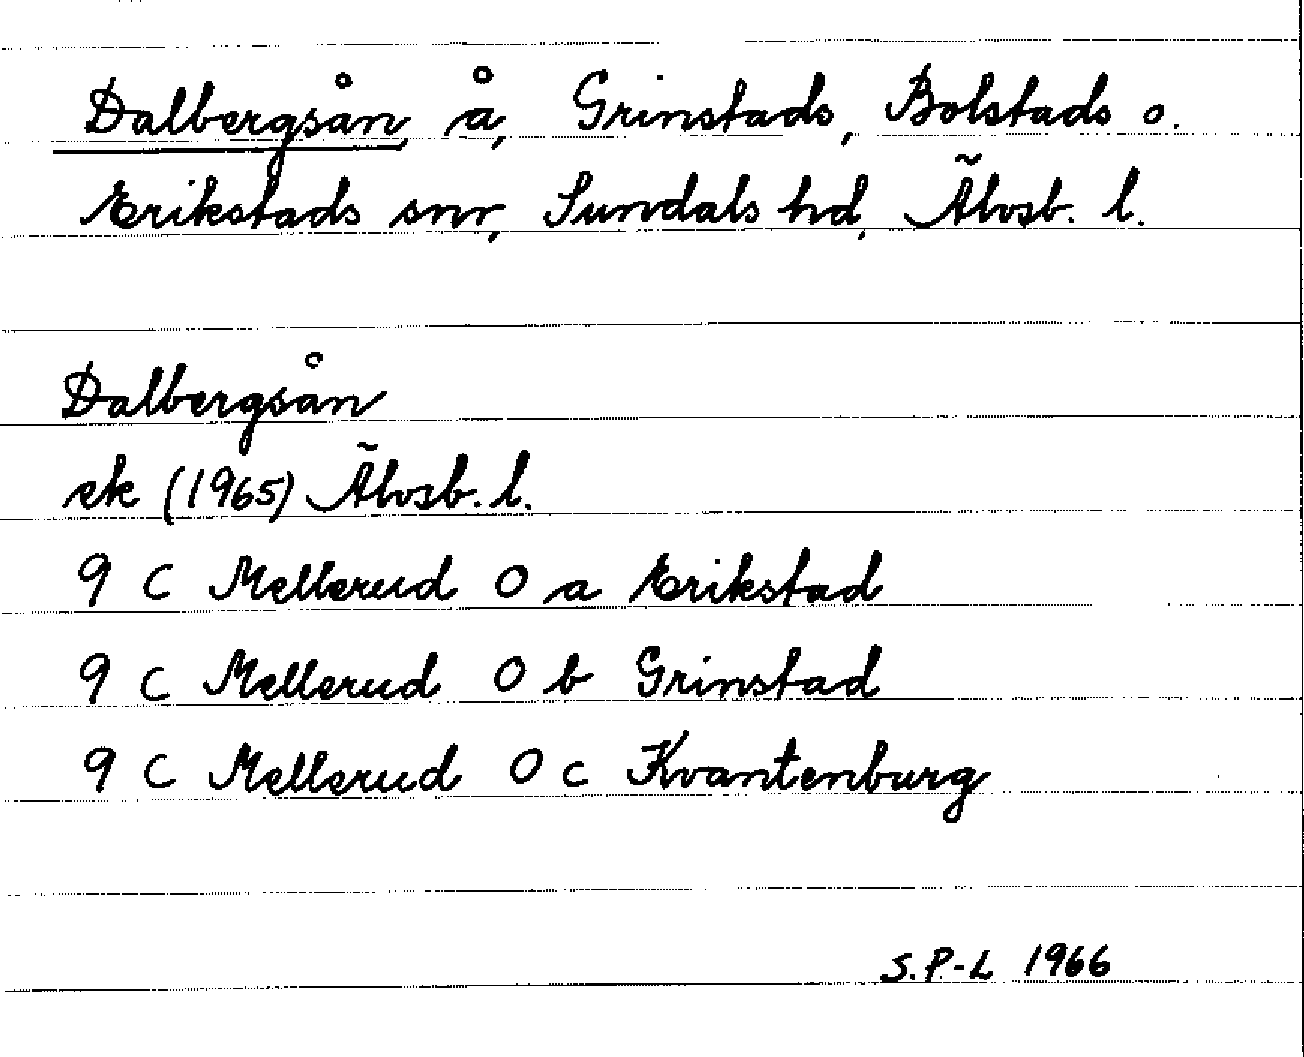 Dalbergsån, å, Grinstads, Bolstads o.
Erikstads snr, Sundals hd, Älvsb. l.
Dalbergsån
ek (1965) Älvsb. l.
9 C Mellerud 0 a Erikstad
9 C Mellerud 0 b Grinstad
9 C Mellerud 0 c Kvantenburg
S.P.-L 1966